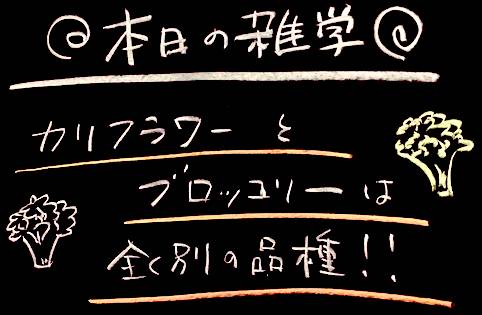 @本日の雑学@
カリフラワーと
ブロッコリーは
全く別の品種!!